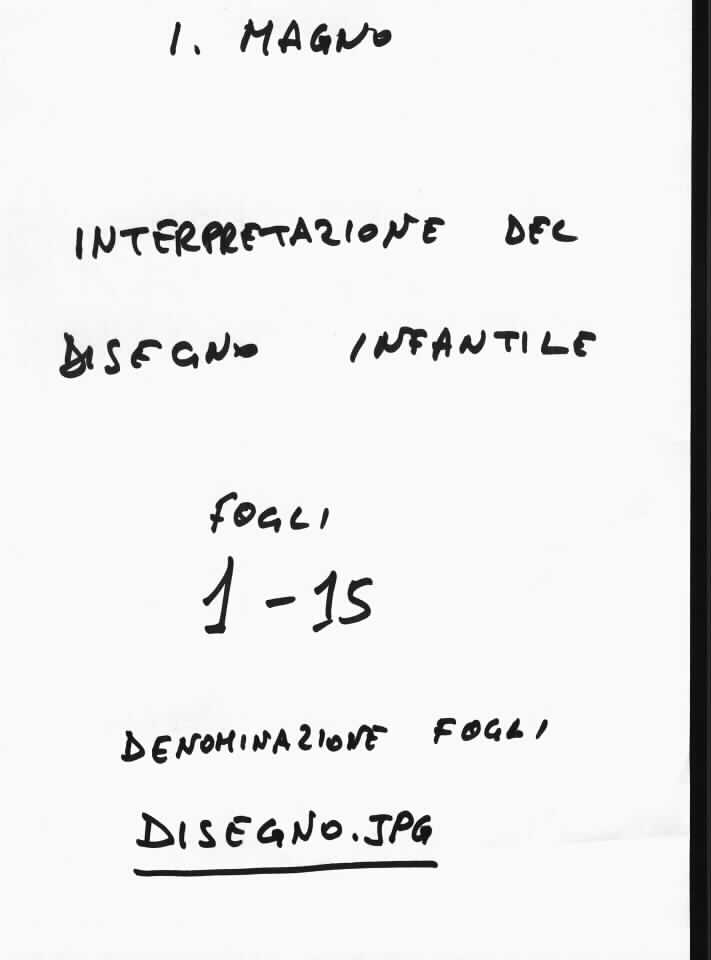 I. MAGNO
INTERPRETAZIONE DEL
DISEGNO INFANTILE
FOGLI
1-15
DENOMINAZIONE FOGLI
DISEGNO.JPG